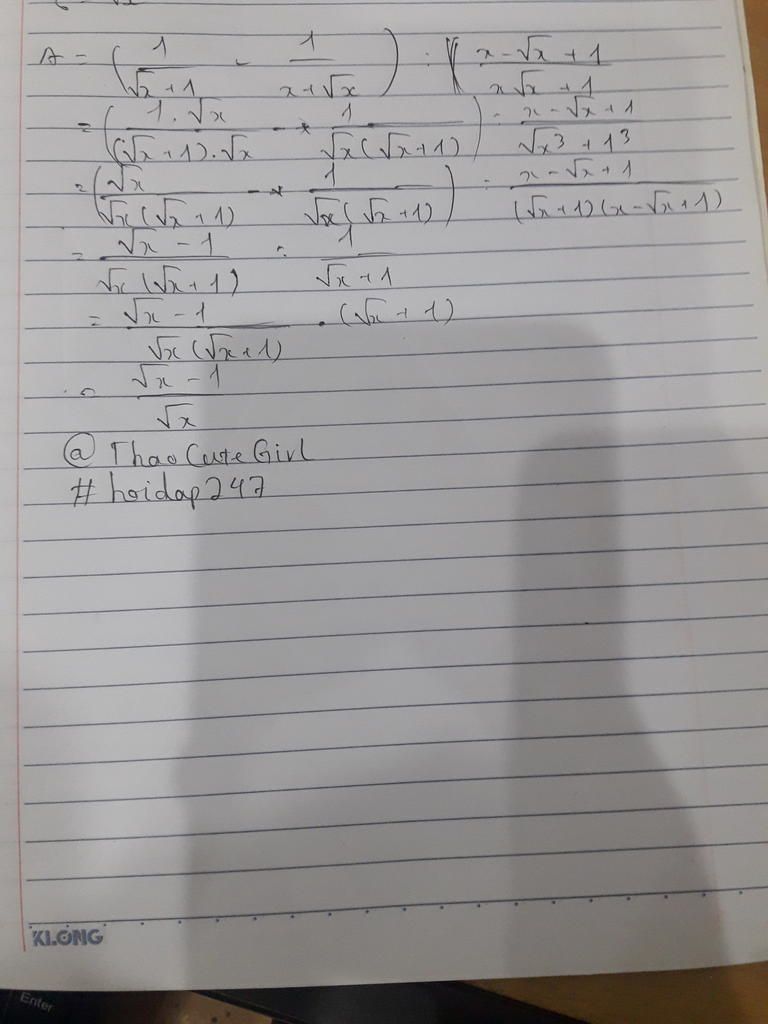 A = (1/(√x + 1) - 1/(x + √x)) : (x - √x + 1)/(x√x + 1)
= (1.√x/((√x + 1).√x) - 1/(√x(√x + 1))) : (x - √x + 1)/(√x³ + 1³)
= (√x/(√x(√x + 1)) - 1/(√x(√x + 1))) : (x - √x + 1)/((√x + 1)(x - √x + 1))
= (√x - 1)/(√x(√x + 1)) : 1/(√x + 1)
= (√x - 1)/(√x(√x + 1)) . (√x + 1)
= (√x - 1)/√x
@ ThaoCuteGirl
# hoidap247
KLONG
Enter